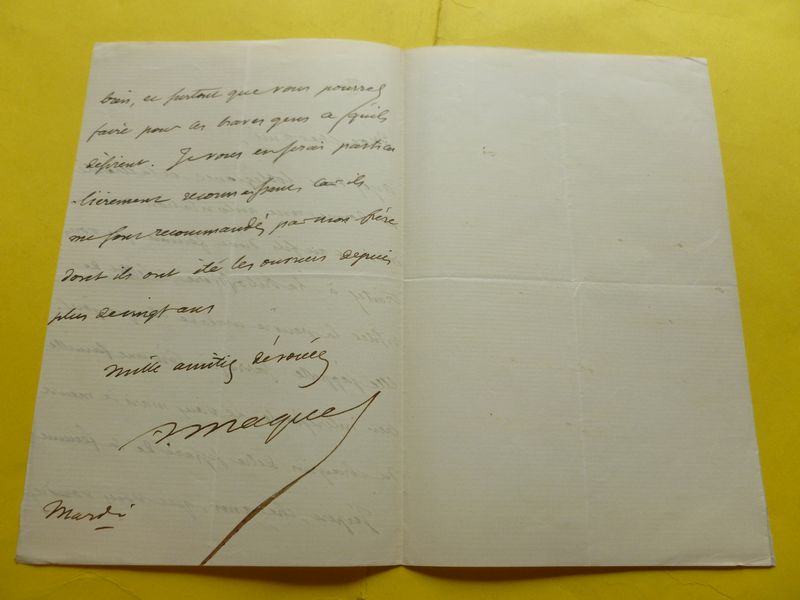 bien, et surtout que vous pourrez
faire pour ces braves gens ce qu'ils
désirent. Je vous en serai particu
-lièrement reconnaissant car ils
me sont recommandés par mon frère
dont ils ont été les ouvriers depuis
plus de vingt ans
Mille amitiés dévouées
Maquet
Mardi